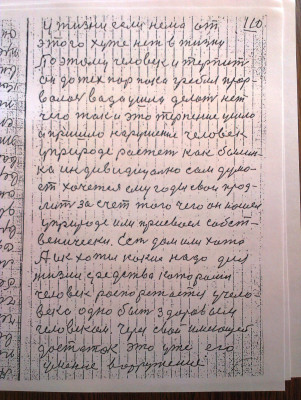 110
у жизни если нема от
этого хуже нет в жизни
Поэтому человек и терпит
он до тех пор пока гребля прор
валась вада ушла делат нет
чего так и это терпение ушло
и пришло нарушение человек
у природе растет как былин
ка индивидуално сам дума
ет хочется ему годы свои прод
лит за счет того чего он нашел
у природе или присвоел собст
венически. Ест дом или хата
А их хоти какие надо для
жизни средства которыми
человек распоряжается у чело
века одно быт здоровым
человеком через свой имеющей
достаток это уже его
умение вооружение